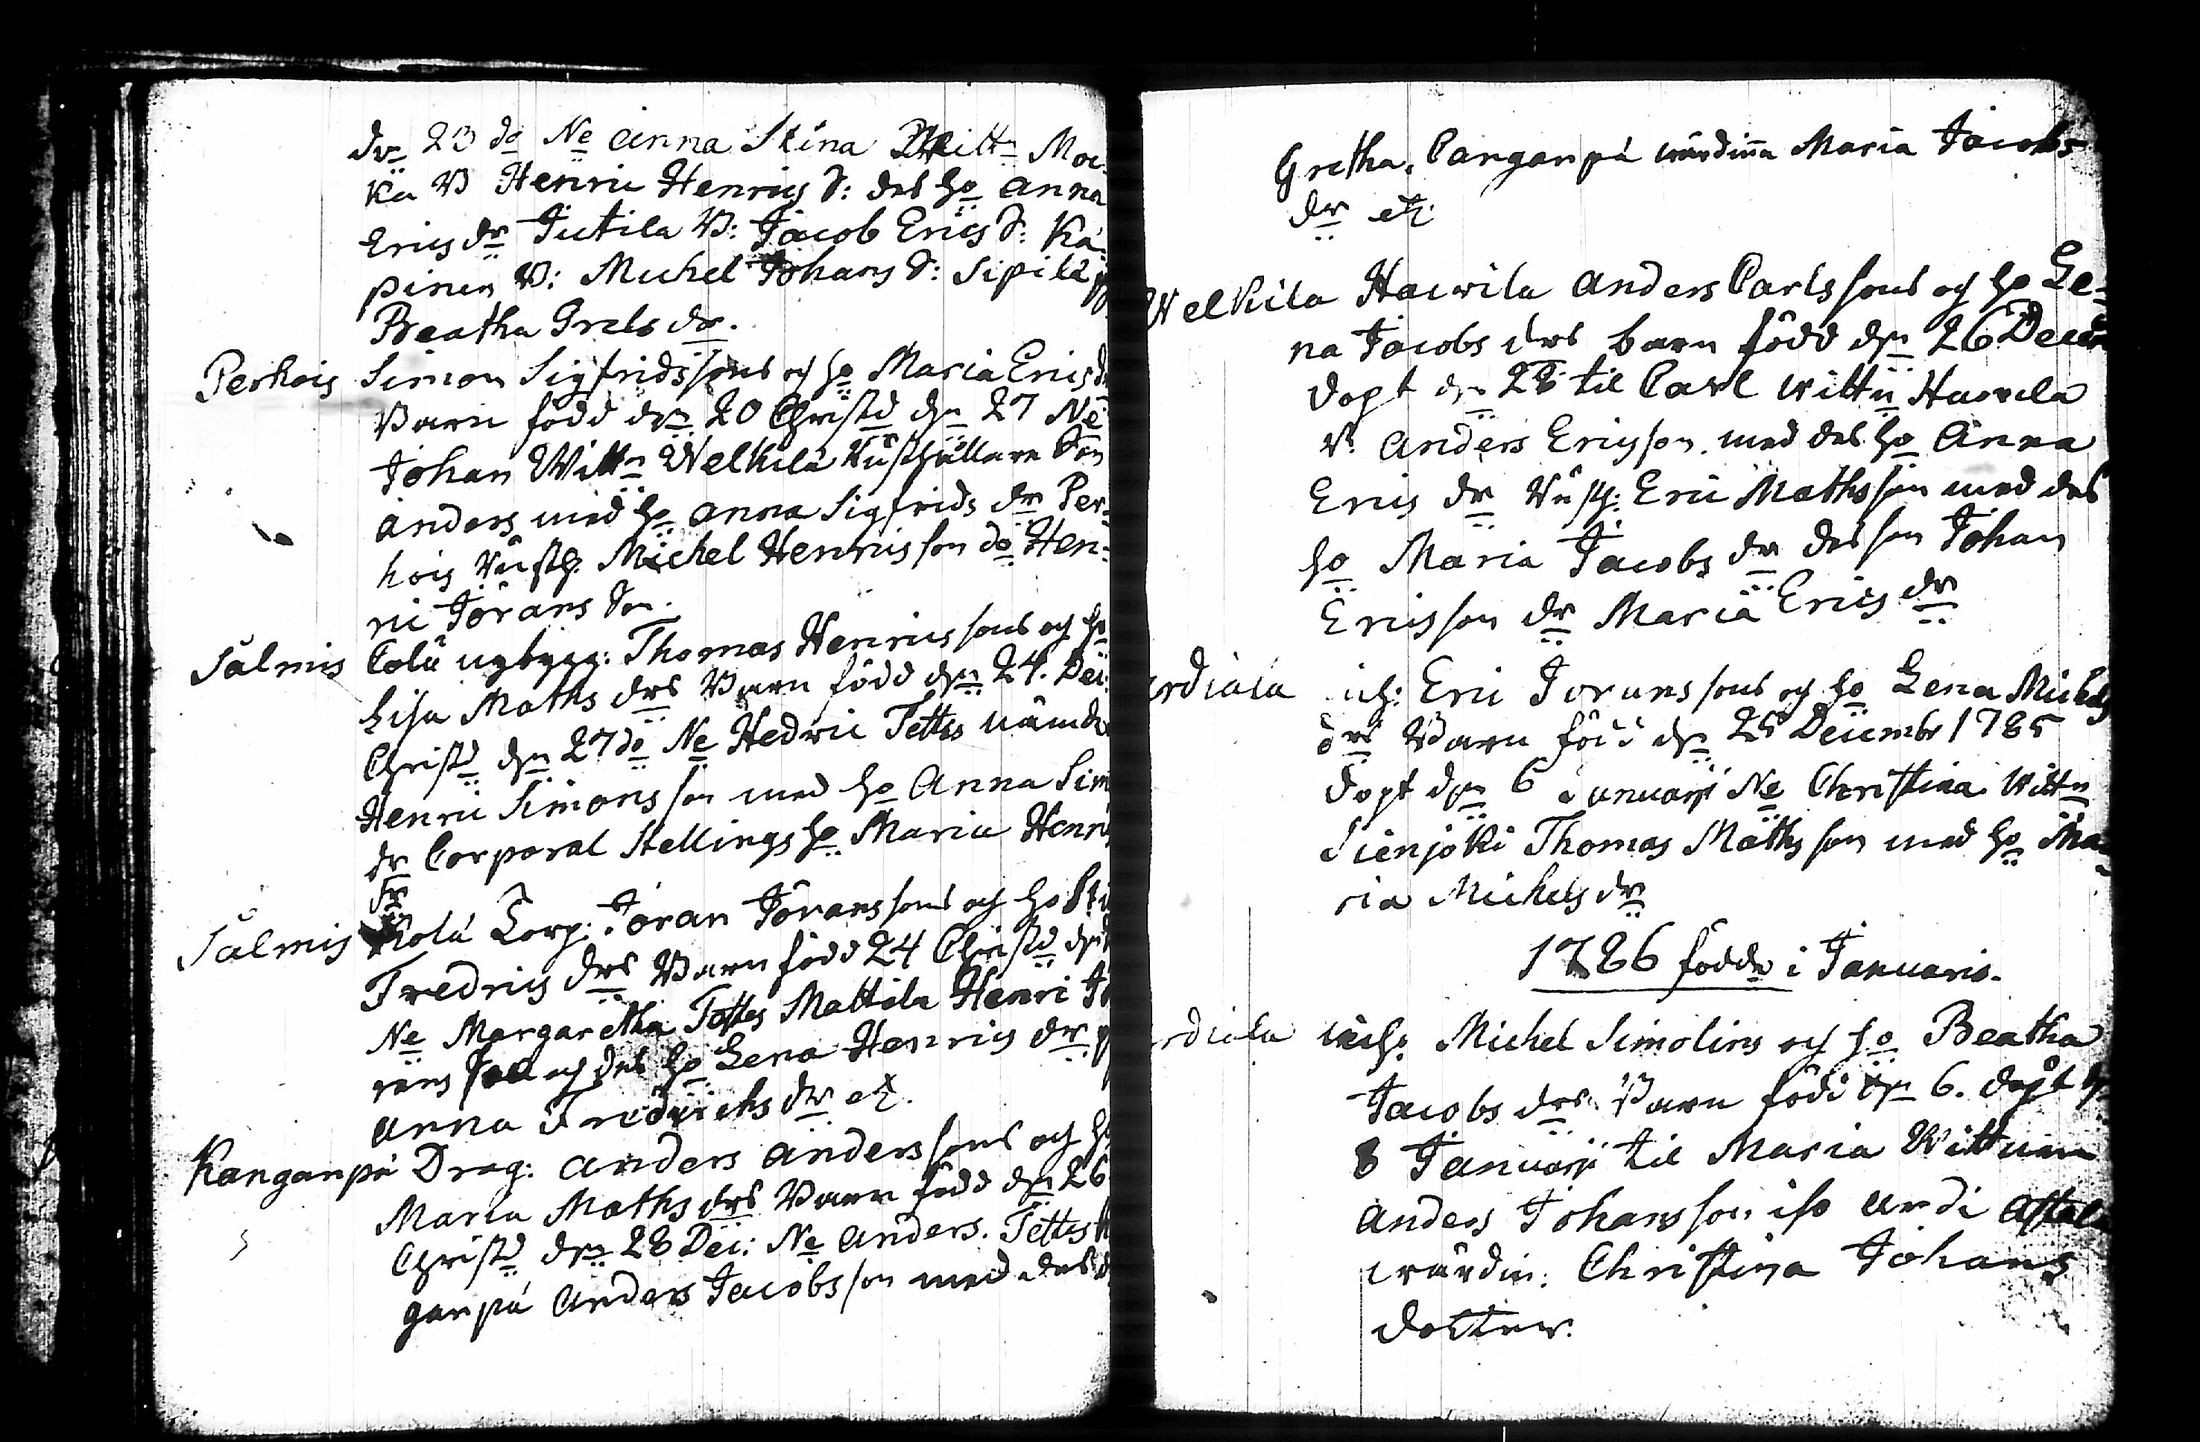 dn 23 do Ne Anna Stina Wittn Mat-
ka B Henric Henrics S: des ho Anna
Erics dr Jutila B: Jacob Erics S: Ka-
pinen B: Michel Johans S: Sipilä
Beatha Grels dr.
Perhois Simon Sigfridssons og ho Maria Erics dr
Barn född den 20 Christd dn 27 Ne
Johan Wittn Welkilä Rusthållare Son
Anders med ho Anna Sigfrids dr Per-
hois Rusth. Michel Henricsson do Hen-
ric Jörans Son.
Salmis Cola nybygg: Thomas Henricssons og ho
Lisa Maths drs Barn född dn 24. Dec:
Christd dn 27 do Ne Hedvic Testes nämde
Henric Simonsson med ho Anna Sim
dr Corporal Stellings ho Maria Henri
dr
Salmis Kola Torp: Joran Joranssons og ho Sti
Fredrics drs Barn född 24 Christd dn
Ne Margaretha Testes Mattila Henri Jö
rans Son og des ho Lena Henrics dr
Anna Fredrichs dr etc.
Kanganpä Drag: Anders Anderssons og ho
Maria Maths drs Barn född dn 26
Christd den 28 Dec: Ne Anders. Testes K
ganpä Anders Jacobsson med des
Gretha, Canganpä wärdinna Maria Jacobs
dr etc
Welkila Hawila Anders Carlssons og ho Le-
na Jacobs drs barn född dn 26 Decem
döpt dn 28 til Carl wittn Hawila
B. Anders Ericsson med des ho Anna
Erics dr Rusth: Eric Mathsson med des
ho Maria Jacobs dr des son Johan
Ericsson dr Maria Erics dr
ardiala inh: Eric Joranssons og ho Lena Michels
drs Barn född dn 25 Decembr 1785
döpt dn 6 Januarji Ne Christina Wittn
Sienjoki Thomas Mathsson med ho Ma-
ria Michels dr
1786 födde i Januario.
ardiala inh. Michel Simolins og ho Beatha
Jacobs drs Barn född dn 6. döpt
8 Januarji til Maria Wittnen
Anders Johansson iso ardi Astala
wärdin: Christina Johans
dotter.